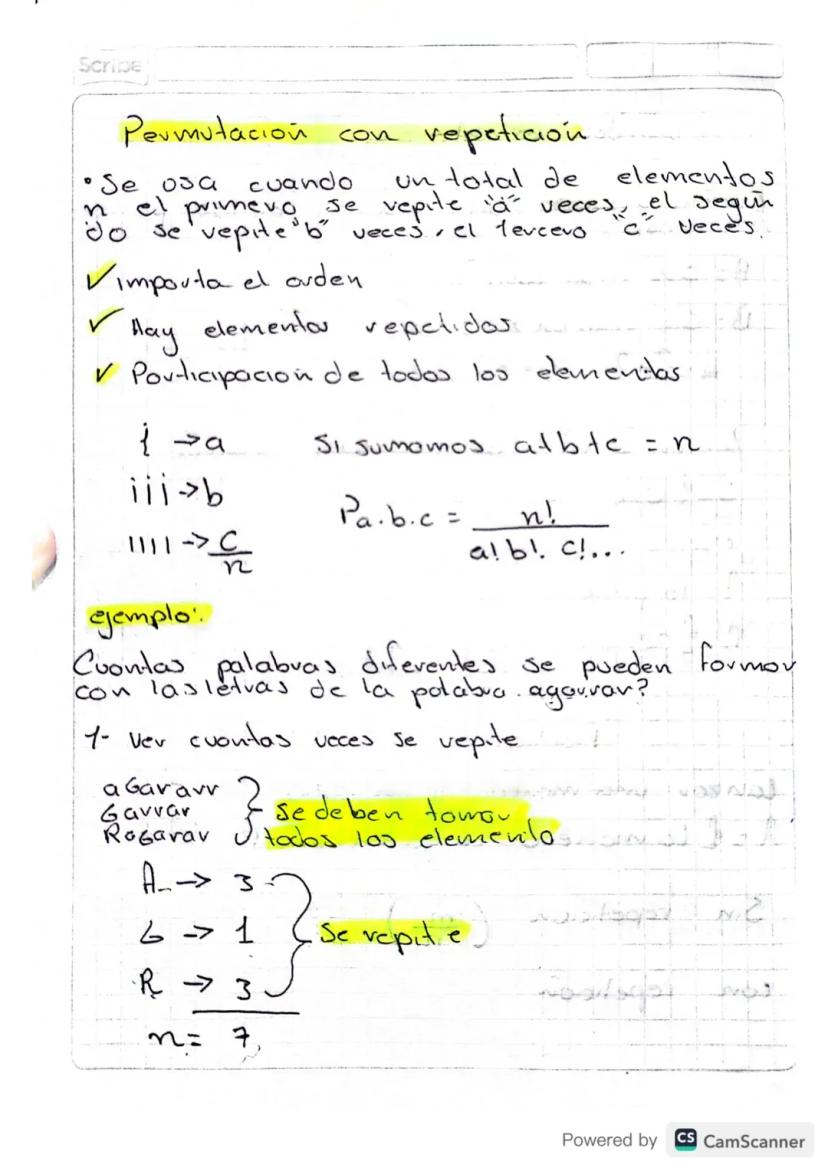 Scribe
Permutación con repetición
• Se usa cuando un total de elementos
n el primero se repite "a" veces, el segun
do se repite "b" veces, el tercero "c" veces.
✓ importa el orden
✓ Hay elementos repetidos
✓ Participación de todos los elementos
i → a Si sumamos a+b+c = n
iii → b
Pa.b.c = n! / a! b!. c!...
IIII → c
n
ejemplo:
Cuantas palabras diferentes se pueden formar
con las letras de la palabra agarrar?
1- Ver cuantas veces se repite
aGararr
Garrar se deben tomar
RaGarar todos los elemento
A → 3
G → 1 Se repite
R → 3
n = 7
Powered by CS CamScanner